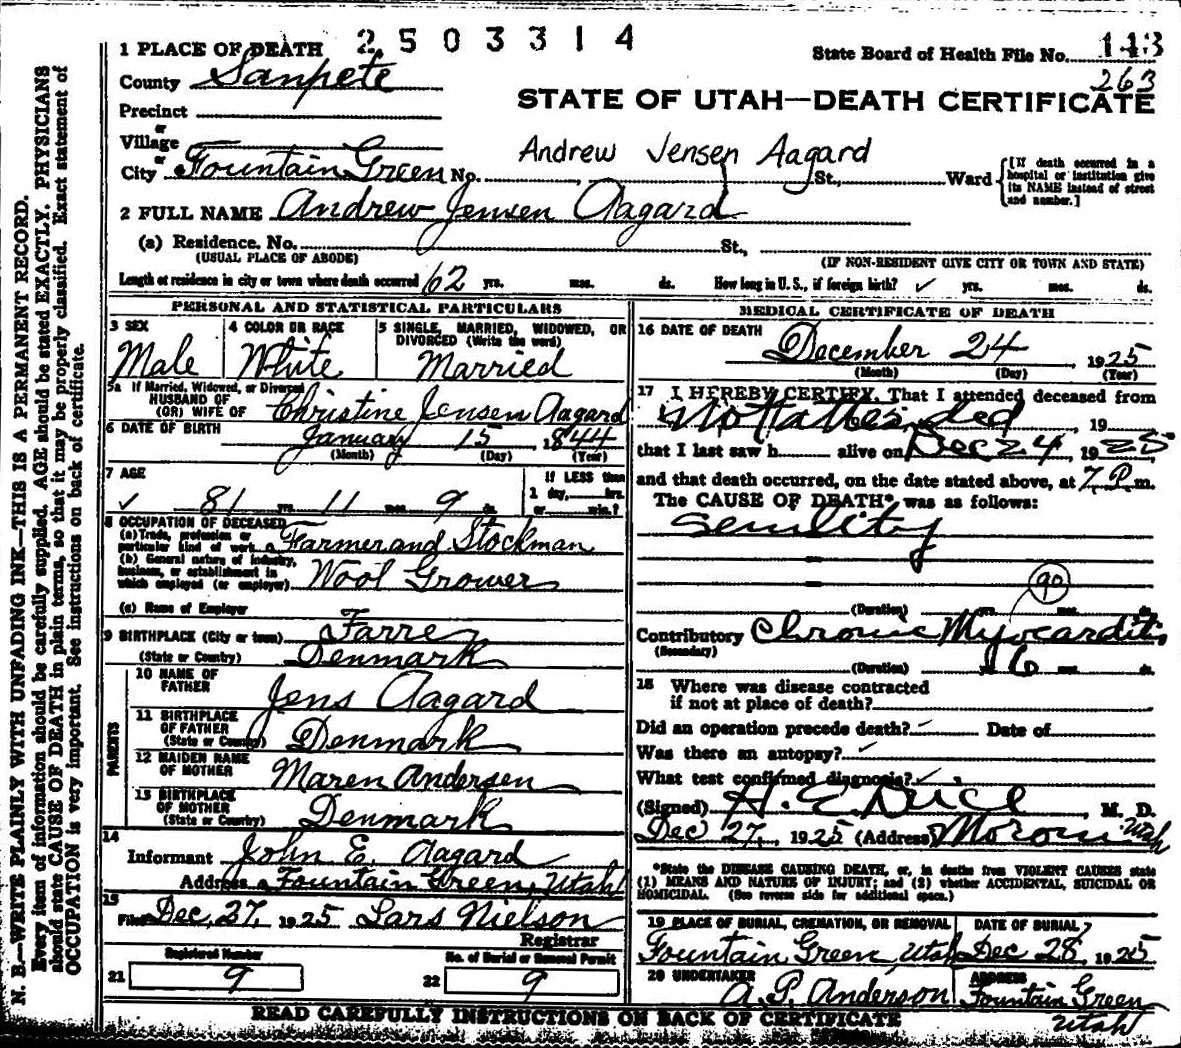 2503314
1 PLACE OF DEATH
State Board of Health File No. 113
263
County Sanpete
STATE OF UTAH—DEATH CERTIFICATE
Precinct
or
Village
Andrew Jensen Aagard
or
City Fountain Green No. St., Ward
[If death occurred in a hospital or institution give its NAME instead of street and number.]
2 FULL NAME Andrew Jensen Aagard
(a) Residence. No. St.,
(USUAL PLACE OF ABODE) (IF NON-RESIDENT GIVE CITY OR TOWN AND STATE)
Length of residence in city or town where death occurred 62 yrs. mos. ds. How long in U. S., if foreign birth? ✓ yrs. mos. ds.
PERSONAL AND STATISTICAL PARTICULARS
3 SEX
Male
4 COLOR OR RACE
White
5 SINGLE, MARRIED, WIDOWED, OR
DIVORCED (Write the word)
Married
5a If Married, Widowed, or Divorced
HUSBAND OF
(OR) WIFE OF Christine Jensen Aagard
6 DATE OF BIRTH January 15, 1844
(Month) (Day) (Year)
7 AGE
✓ 81 yrs. 11 mos. 9 ds.
If LESS than
1 day, hrs.
or min.?
8 OCCUPATION OF DECEASED
(a) Trade, profession or
particular kind of work Farmer and Stockman
(b) General nature of industry,
business, or establishment in
which employed (or employer) Wool Grower
(c) Name of Employer
9 BIRTHPLACE (City or town) Farre
(State or Country) Denmark
PARENTS
10 NAME OF
FATHER Jens Aagard
11 BIRTHPLACE
OF FATHER
(State or Country) Denmark
12 MAIDEN NAME
OF MOTHER Maren Andersen
13 BIRTHPLACE
OF MOTHER
(State or Country) Denmark
14
Informant John E. Aagard
Address Fountain Green, Utah
15
Filed Dec, 27, 1925 Lars Nielson
Registrar
Registered Number
21 9
No. of Burial or Removal Permit
22 9
MEDICAL CERTIFICATE OF DEATH
16 DATE OF DEATH
December 24, 1925
(Month) (Day) (Year)
17 I HEREBY CERTIFY, That I attended deceased from
Not attended, 19
that I last saw h alive on Dec 24, 1925,
and that death occurred, on the date stated above, at 7 P. m.
The CAUSE OF DEATH* was as follows:
Senility
90
(Duration) yrs. mos. ds.
Contributory Chronic Myocarditis
(Secondary)
(Duration) 6 mos. ds.
18 Where was disease contracted
if not at place of death?
Did an operation precede death? Date of
Was there an autopsy? ✓
What test confirmed diagnosis? ✓
(Signed) M. D.
Dec 27, 1925 (Address) Moroni Utah
*State the DISEASE CAUSING DEATH, or, in deaths from VIOLENT CAUSES state
(1) MEANS AND NATURE OF INJURY; and (2) whether ACCIDENTAL, SUICIDAL OR
HOMICIDAL. (See reverse side for additional space.)
19 PLACE OF BURIAL, CREMATION, OR REMOVAL
Fountain Green, Utah
DATE OF BURIAL
Dec 28, 1925
20 UNDERTAKER
A. P. Anderson
ADDRESS
Fountain Green
Utah
READ CAREFULLY INSTRUCTIONS ON BACK OF CERTIFICATE
N. B.—WRITE PLAINLY WITH UNFADING INK—THIS IS A PERMANENT RECORD.
Every item of information should be carefully supplied. AGE should be stated EXACTLY. PHYSICIANS
should state CAUSE OF DEATH in plain terms, so that it may be properly classified. Exact statement of
OCCUPATION is very important. See instructions on back of certificate.